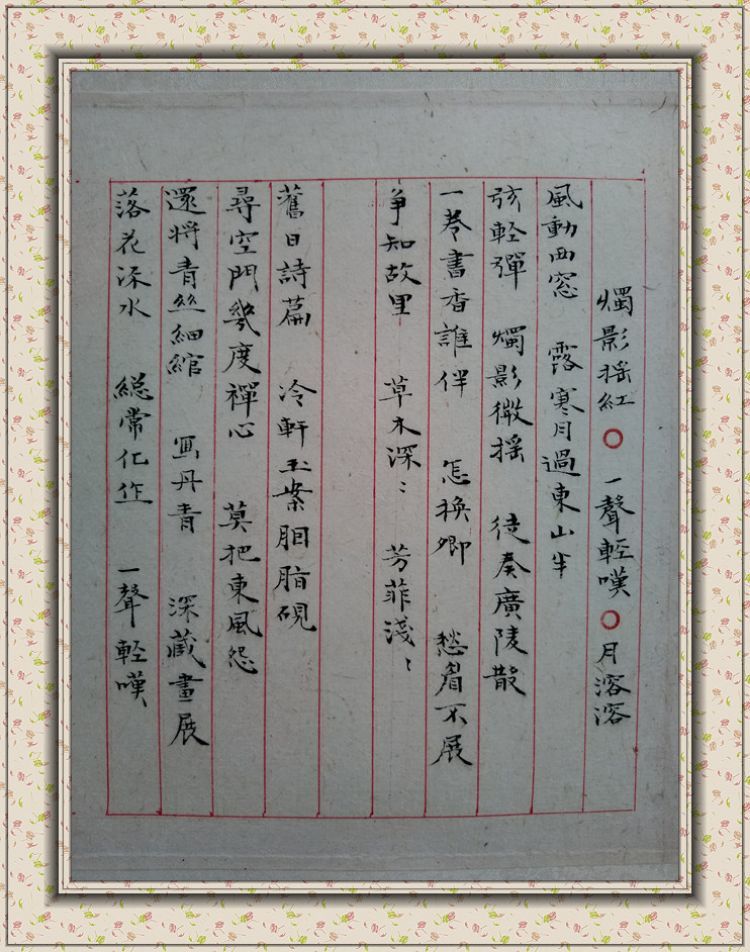 燭影摇紅○一聲輕嘆○月溶溶
風動西窓 露寒月過東山半
弦輕彈 燭影微摇 徒奏廣陵散
一卷書香誰伴 怎换卿 愁眉不展
争知故里 草木深〻 芳菲淺〻
舊日詩篇 冷軒玉案胭脂硯
尋空門幾度禪心 莫把東風怨
還将青丝細綰 寫丹青 深藏畫展
落花深水 総常化作 一聲輕嘆